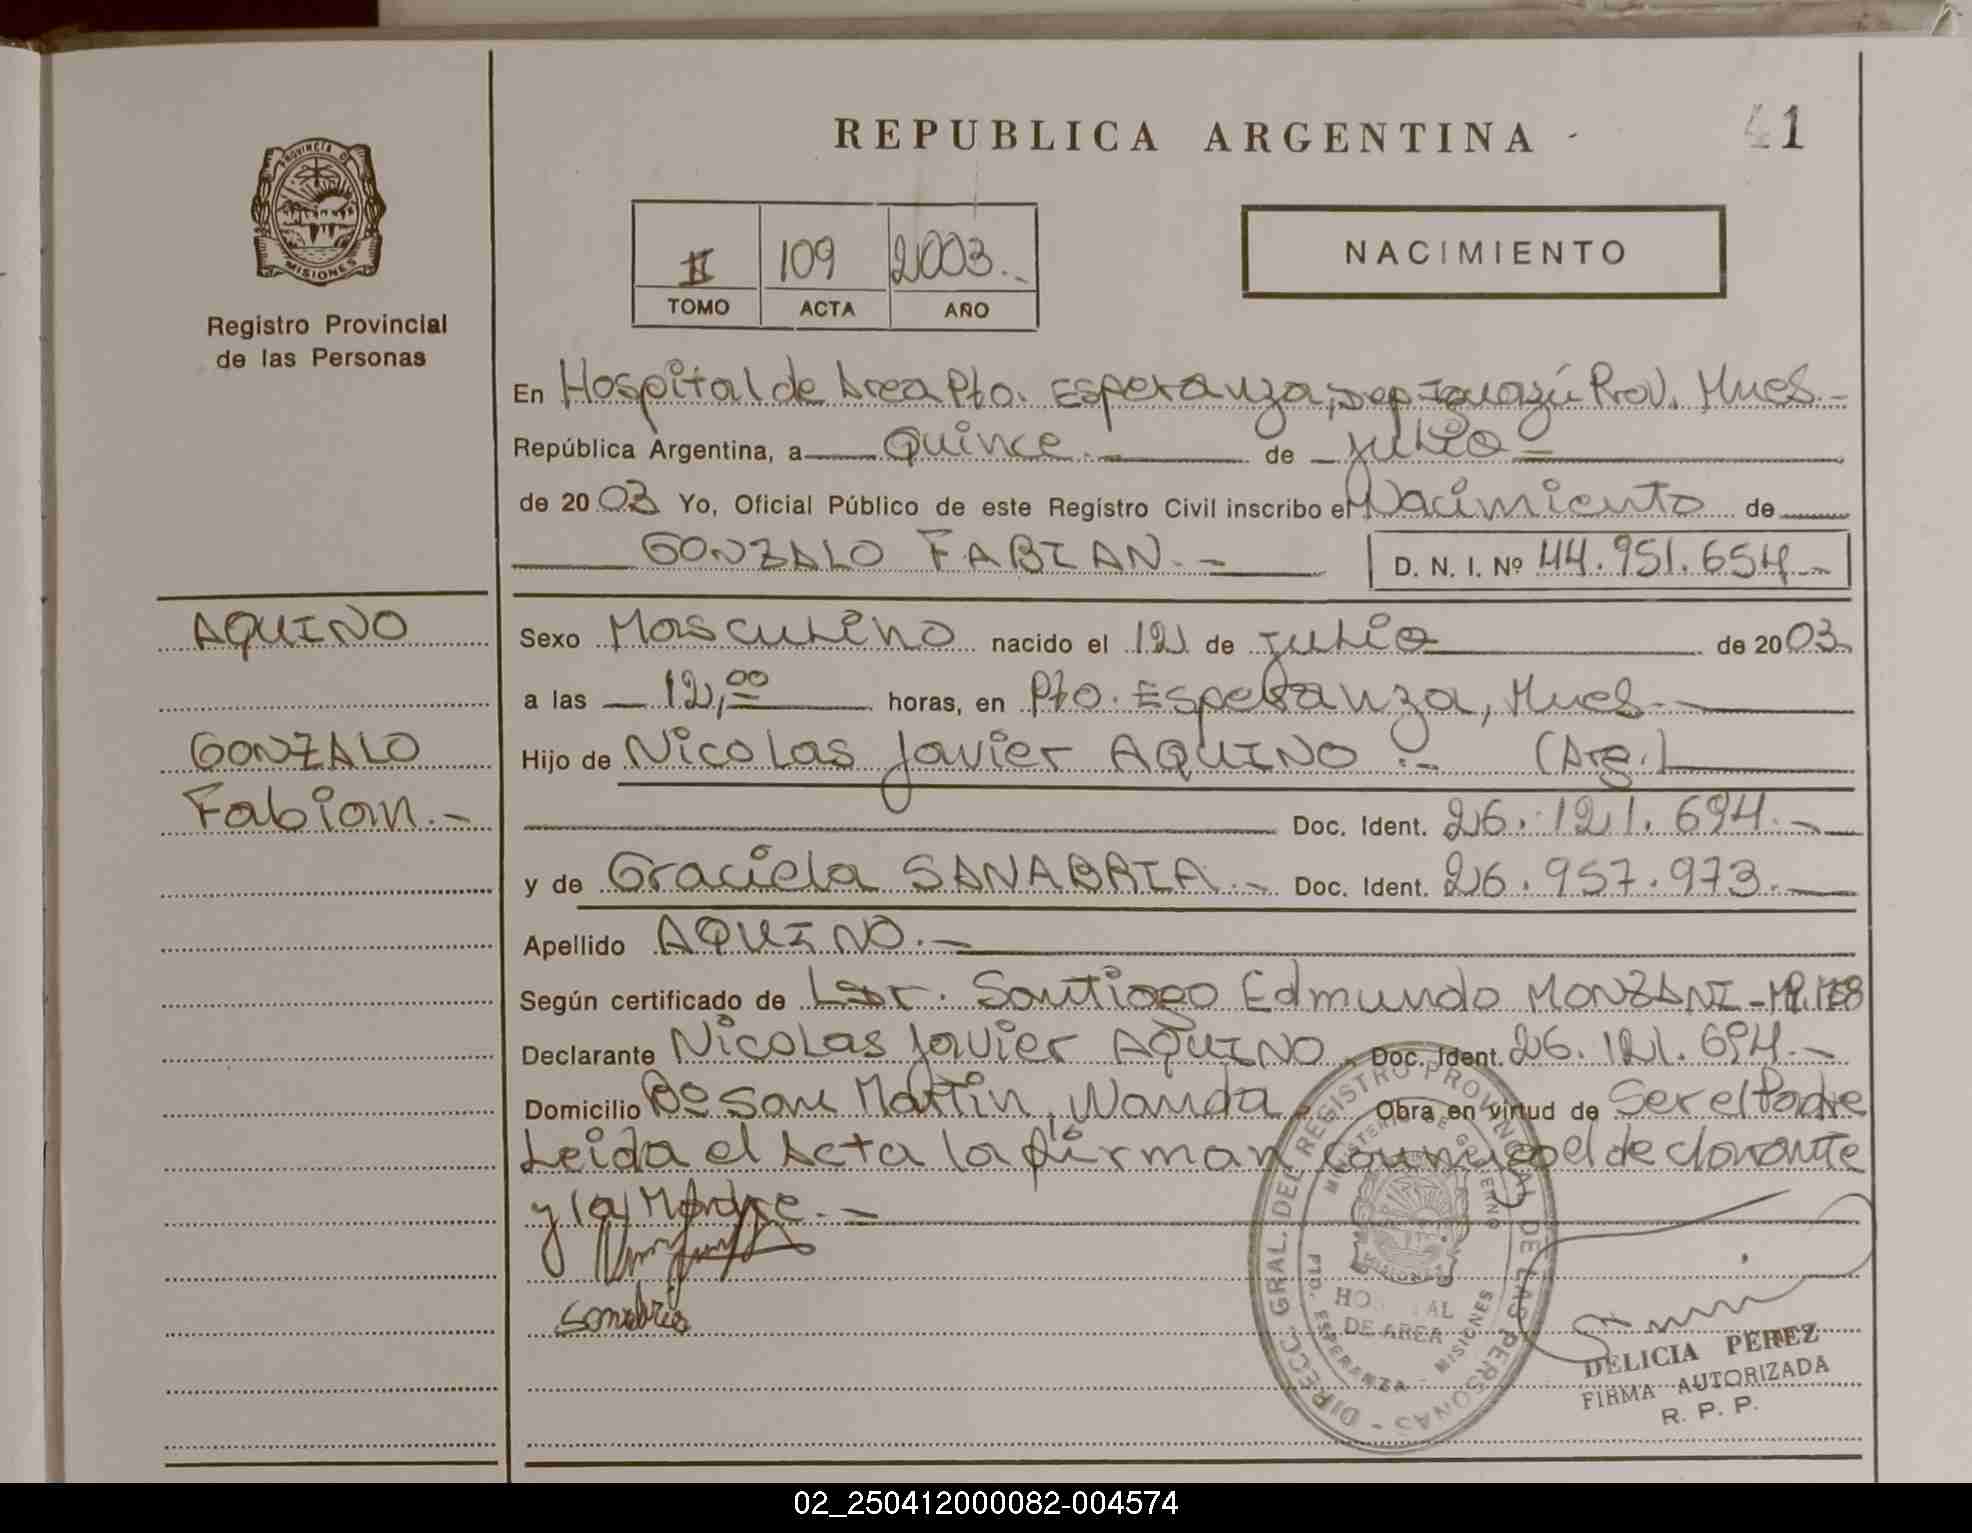 REPUBLICA ARGENTINA
41
PROVINCIA DE MISIONES
Registro Provincial
de las Personas
II 109 2003.-
TOMO ACTA AÑO
NACIMIENTO
En Hospital de Area Pto. Esperanza, Dep Iguazú Prov. Mnes.-
República Argentina, a Quince.- de julio=
de 2003 Yo, Oficial Público de este Registro Civil inscribo el Nacimiento de
GONZALO FABIAN.- D. N. I. Nº 44.951.654.-
AQUINO
Sexo Masculino nacido el 12 de julio de 2003.
a las 12,00 horas, en Pto. Esperanza, Mnes.-
GONZALO
Fabian.-
Hijo de Nicolas Javier AQUINO.- (Arg.)
Doc. Ident. 26.121.694.-
y de Graciela SANABRIA.- Doc. Ident. 26.957.973.-
Apellido AQUINO.-
Según certificado de Santiago Edmundo MONZANI -
Declarante Nicolas Javier AQUINO. Doc. Ident. 26.121.694.-
Domicilio Bº San Martin, Wanda. Obra en virtud de Ser el Padre
Leida el Acta la firman conmigo el declarante
y la Madre.-
Sanabria
DIRECC. GRAL. DEL REGISTRO PROVINCIAL DE LAS PERSONAS -
MINISTERIO DE GOBIERNO
MISIONES
HOSPITAL
DE AREA
PTO. ESPERANZA - MISIONES
DELICIA PEREZ
FIRMA AUTORIZADA
R. P. P.
02_250412000082-004574